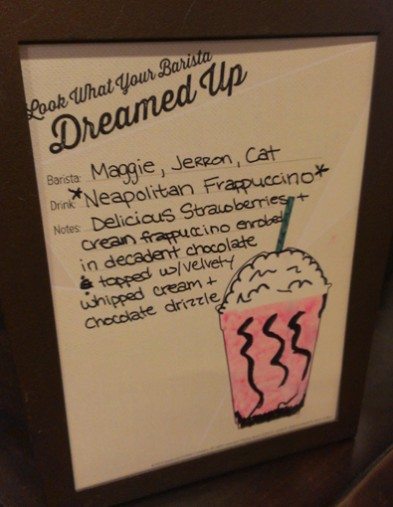 Look What Your Barista
Dreamed Up
Barista: Maggie, Jerron, Cat
Drink: *Neapolitan Frappuccino*
Notes: Delicious Strawberries +
cream frappuccino enrobed
in decadent chocolate
& topped w/velvety
whipped cream +
chocolate drizzle